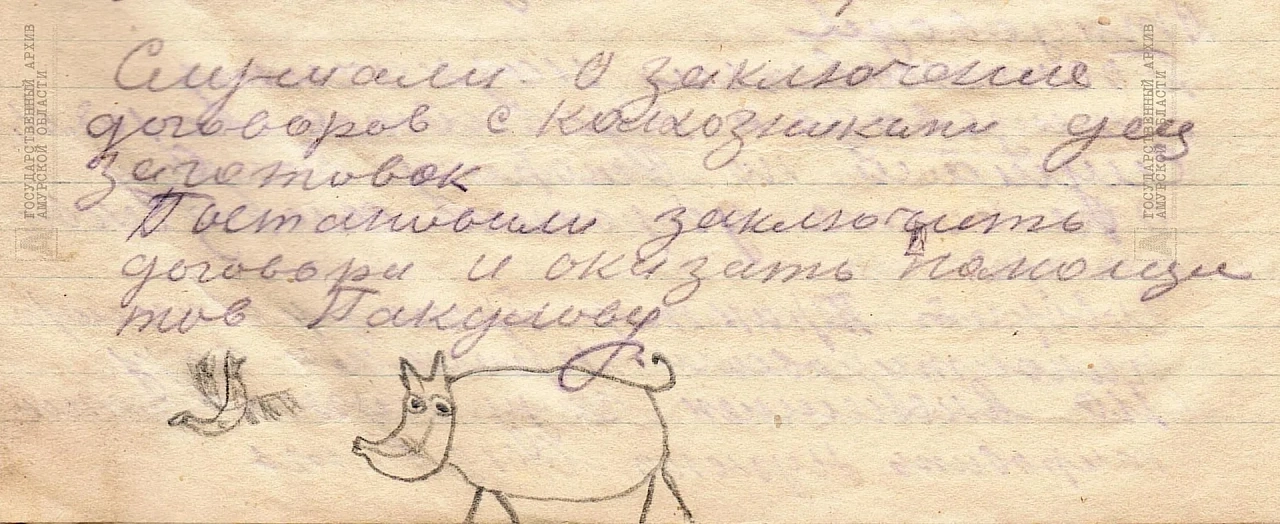 Слушали О заключение
договоров с колхозниками
заготовок
Постановили заключить
договора и оказать помощи
тов Пакулову
ГОСУДАРСТВЕННЫЙ АРХИВ
АМУРСКОЙ ОБЛАСТИ
ГОСУДАРСТВЕННЫЙ АРХИВ
АМУРСКОЙ ОБЛАСТИ